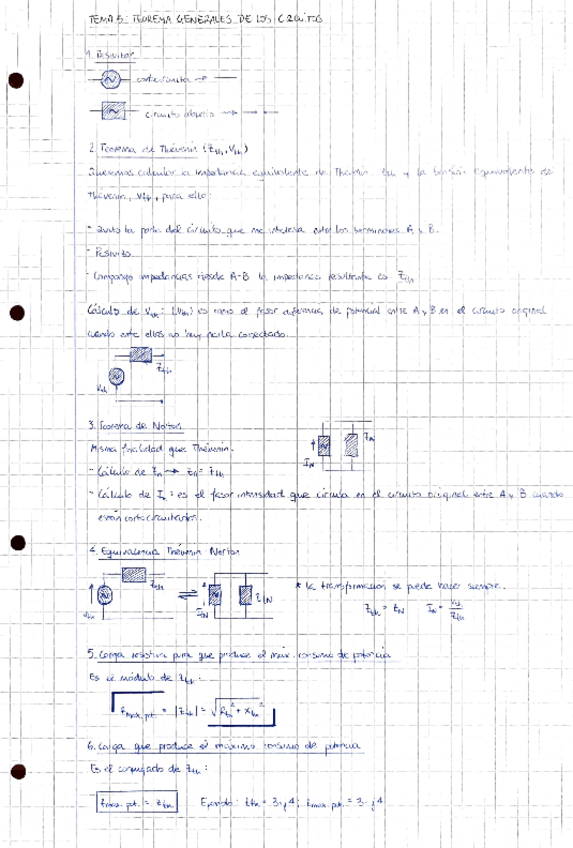 TEMA 5: TEOREMA GENERALES DE LOS CIRCUITOS
1. Pasivitar
cortocircuito →
circuito abierto →
2. Teorema de Thévenin (Zth, Vth)
Queremos calcular la impedancia equivalente de Théven. Zth y la tensión equivalente de
Thévenin, Vth, para ello:
- Quito la parte del circuito que me interesa entre los terminales A y B.
- Pasivizo
- Compongo impedancias desde A-B la impedancia resultante es Zth
Cálculo de Vth: (Vth) es el fasor diferencia de potencial entre A y B en el circuito original
cuando entre ellos no hay nada conectado.
Zth
Vth
3. Teorema de Norton
Misma finalidad que Thévenin.
- Cálculo de Zn → Zn = Zth
IN
Zn
- Cálculo de In: es el fasor intensidad que circula en el circuito original entre A y B cuando
están cortocircuitados.
4. Equivalencia Thévenin Norton
Zth
Vth
⇌
IN
ZN
* la transformación se puede hacer siempre.
Zth = ZN IN = Vth/Zth
5. Carga resistiva para que produce el máx. consumo de potencia
Es el módulo de Zth:
Zmax.pot. = |Zth| = √Rth² + Xth²
6. Carga que produce el máximo consumo de potencia
Es el conjugado de Zth:
Zmax. pot. = Zth
Ejemplo: Zth = 3+j4; Zmax. pot. = 3-j4